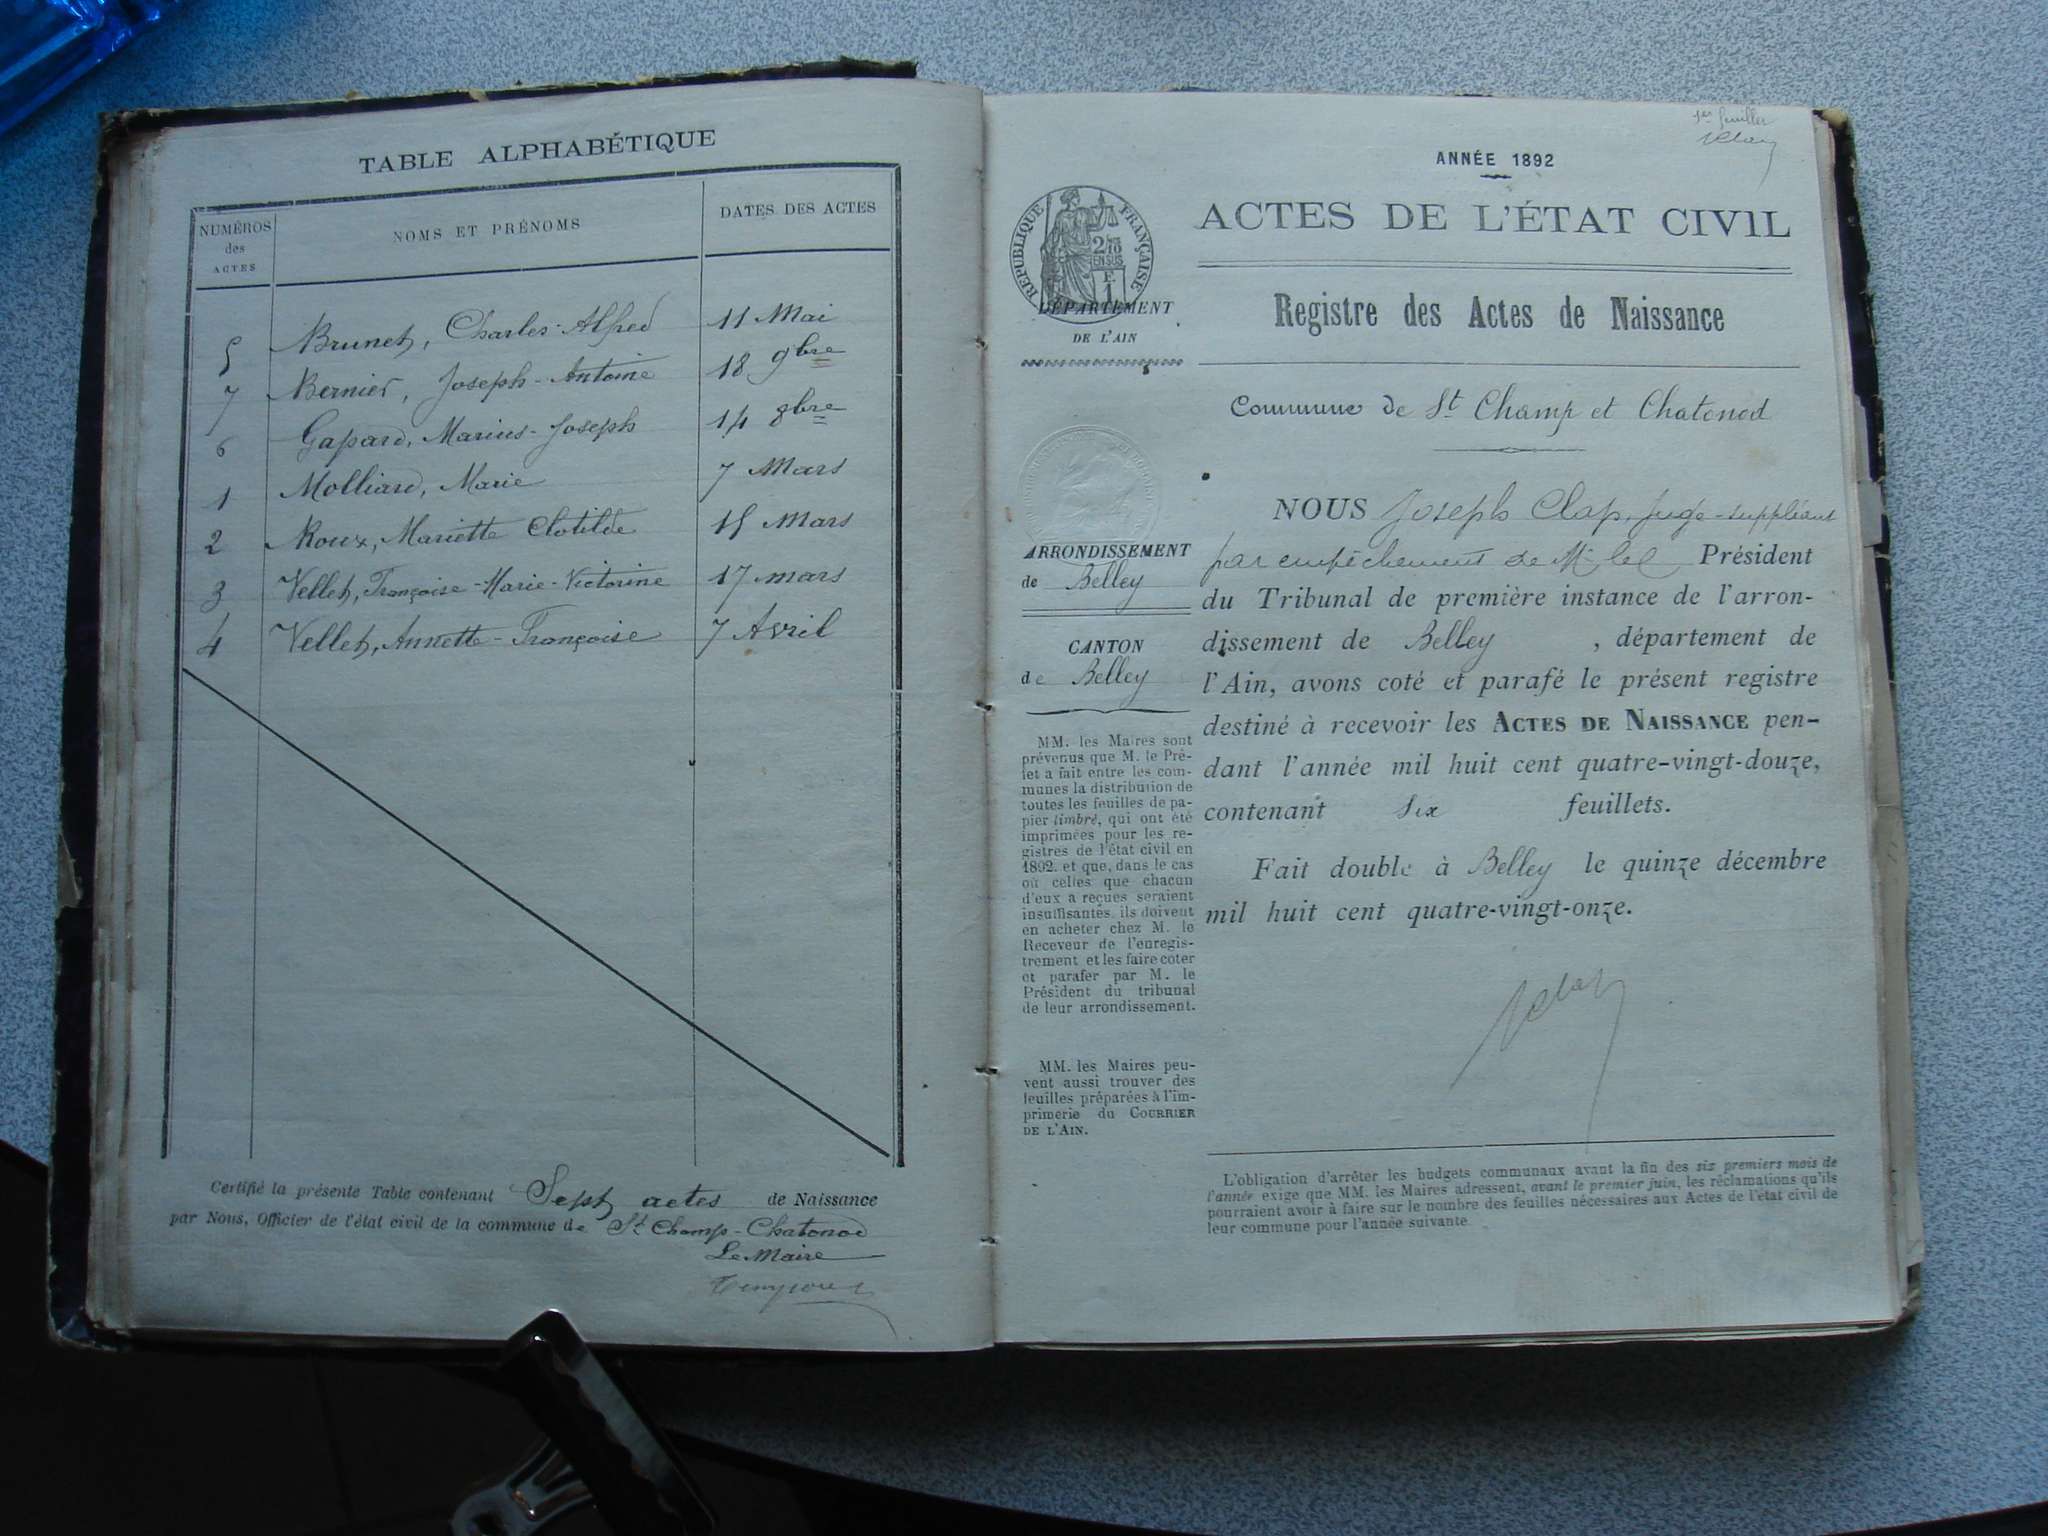 TABLE ALPHABÉTIQUE
NUMÉROS
des
ACTES
NOMS ET PRÉNOMS
DATES DES ACTES
5 Brunet, Charles-Alfred 11 Mai
7 Bernier, Joseph-Antoine 18 9bre
6 Gapard, Marius-Joseph 14 8bre
1 Molliard, Marie 7 Mars
2 Roux, Mariette Clotilde 15 Mars
3 Vellet, Françoise-Marie-Victorine 17 mars
4 Vellet, Annette-Françoise 7 Avril
Certifié la présente Table contenant Sept actes de Naissance
par Nous, Officier de l'état civil de la commune de St Champ-Chatonod
Le Maire
1er feuillet
ANNÉE 1892
ACTES DE L'ÉTAT CIVIL
RÉPUBLIQUE FRANÇAISE
2/10
EN SUS
F.
1
DÉPARTEMENT
DE L'AIN
Registre des Actes de Naissance
Commune de St Champ et Chatonod
ARRONDISSEMENT
de Belley
CANTON
de Belley
MM. les Maires sont
prévenus que M. le Pré-
fet a fait entre les com-
munes la distribution de
toutes les feuilles de pa-
pier timbré, qui ont été
imprimées pour les re-
gistres de l'état civil en
1892. et que, dans le cas
où celles que chacun
d'eux a reçues seraient
insuffisantes, ils doivent
en acheter chez M. le
Receveur de l'enregis-
trement et les faire coter
et parafer par M. le
Président du tribunal
de leur arrondissement.
MM. les Maires peu-
vent aussi trouver des
feuilles préparées à l'im-
primerie du COURRIER
DE L'AIN.
NOUS Joseph Clap, Juge-suppléant
par empêchement de Mr le Président
du Tribunal de première instance de l'arron-
dissement de Belley , département de
l'Ain, avons coté et parafé le présent registre
destiné à recevoir les ACTES DE NAISSANCE pen-
dant l'année mil huit cent quatre-vingt-douze,
contenant six feuillets.
Fait double à Belley le quinze décembre
mil huit cent quatre-vingt-onze.
L'obligation d'arrêter les budgets communaux avant la fin des six premiers mois de
l'année exige que MM. les Maires adressent, avant le premier juin, les réclamations qu'ils
pourraient avoir à faire sur le nombre des feuilles nécessaires aux Actes de l'état civil de
leur commune pour l'année suivante.